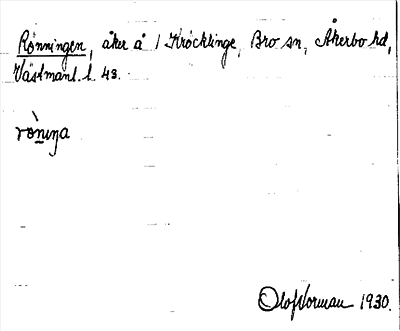 Rönningen, åker å 1 Kröcklinge, Bro sn, Åkerbo hd,
Västmanl. l. 43.
rö̀nıŋa
Olof Norman 1930.